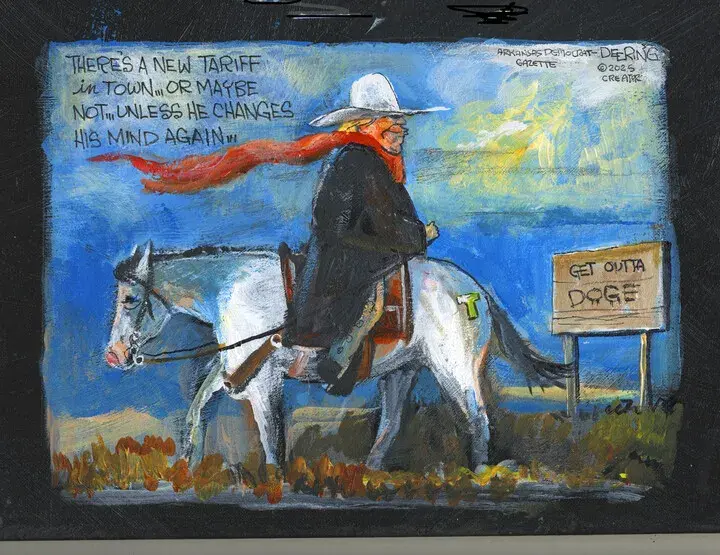 THERE'S A NEW TARIFF
in TOWN... OR MAYBE
NOT... UNLESS HE CHANGES
HIS MIND AGAIN...
ARKANSAS DEMOCRAT-
GAZETTE
DEERING
©2025
CREATORS
T
GET OUTTA
DOGE